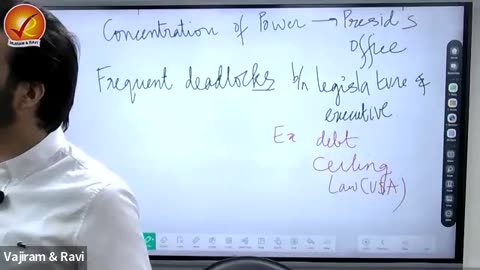 VAJIRAM & RAVI
Concentration of Power → Presid's
Office
Frequent deadlocks b/n legislature &
executive
Ex debt
Ceiling
Law (USA)
Vajiram & Ravi